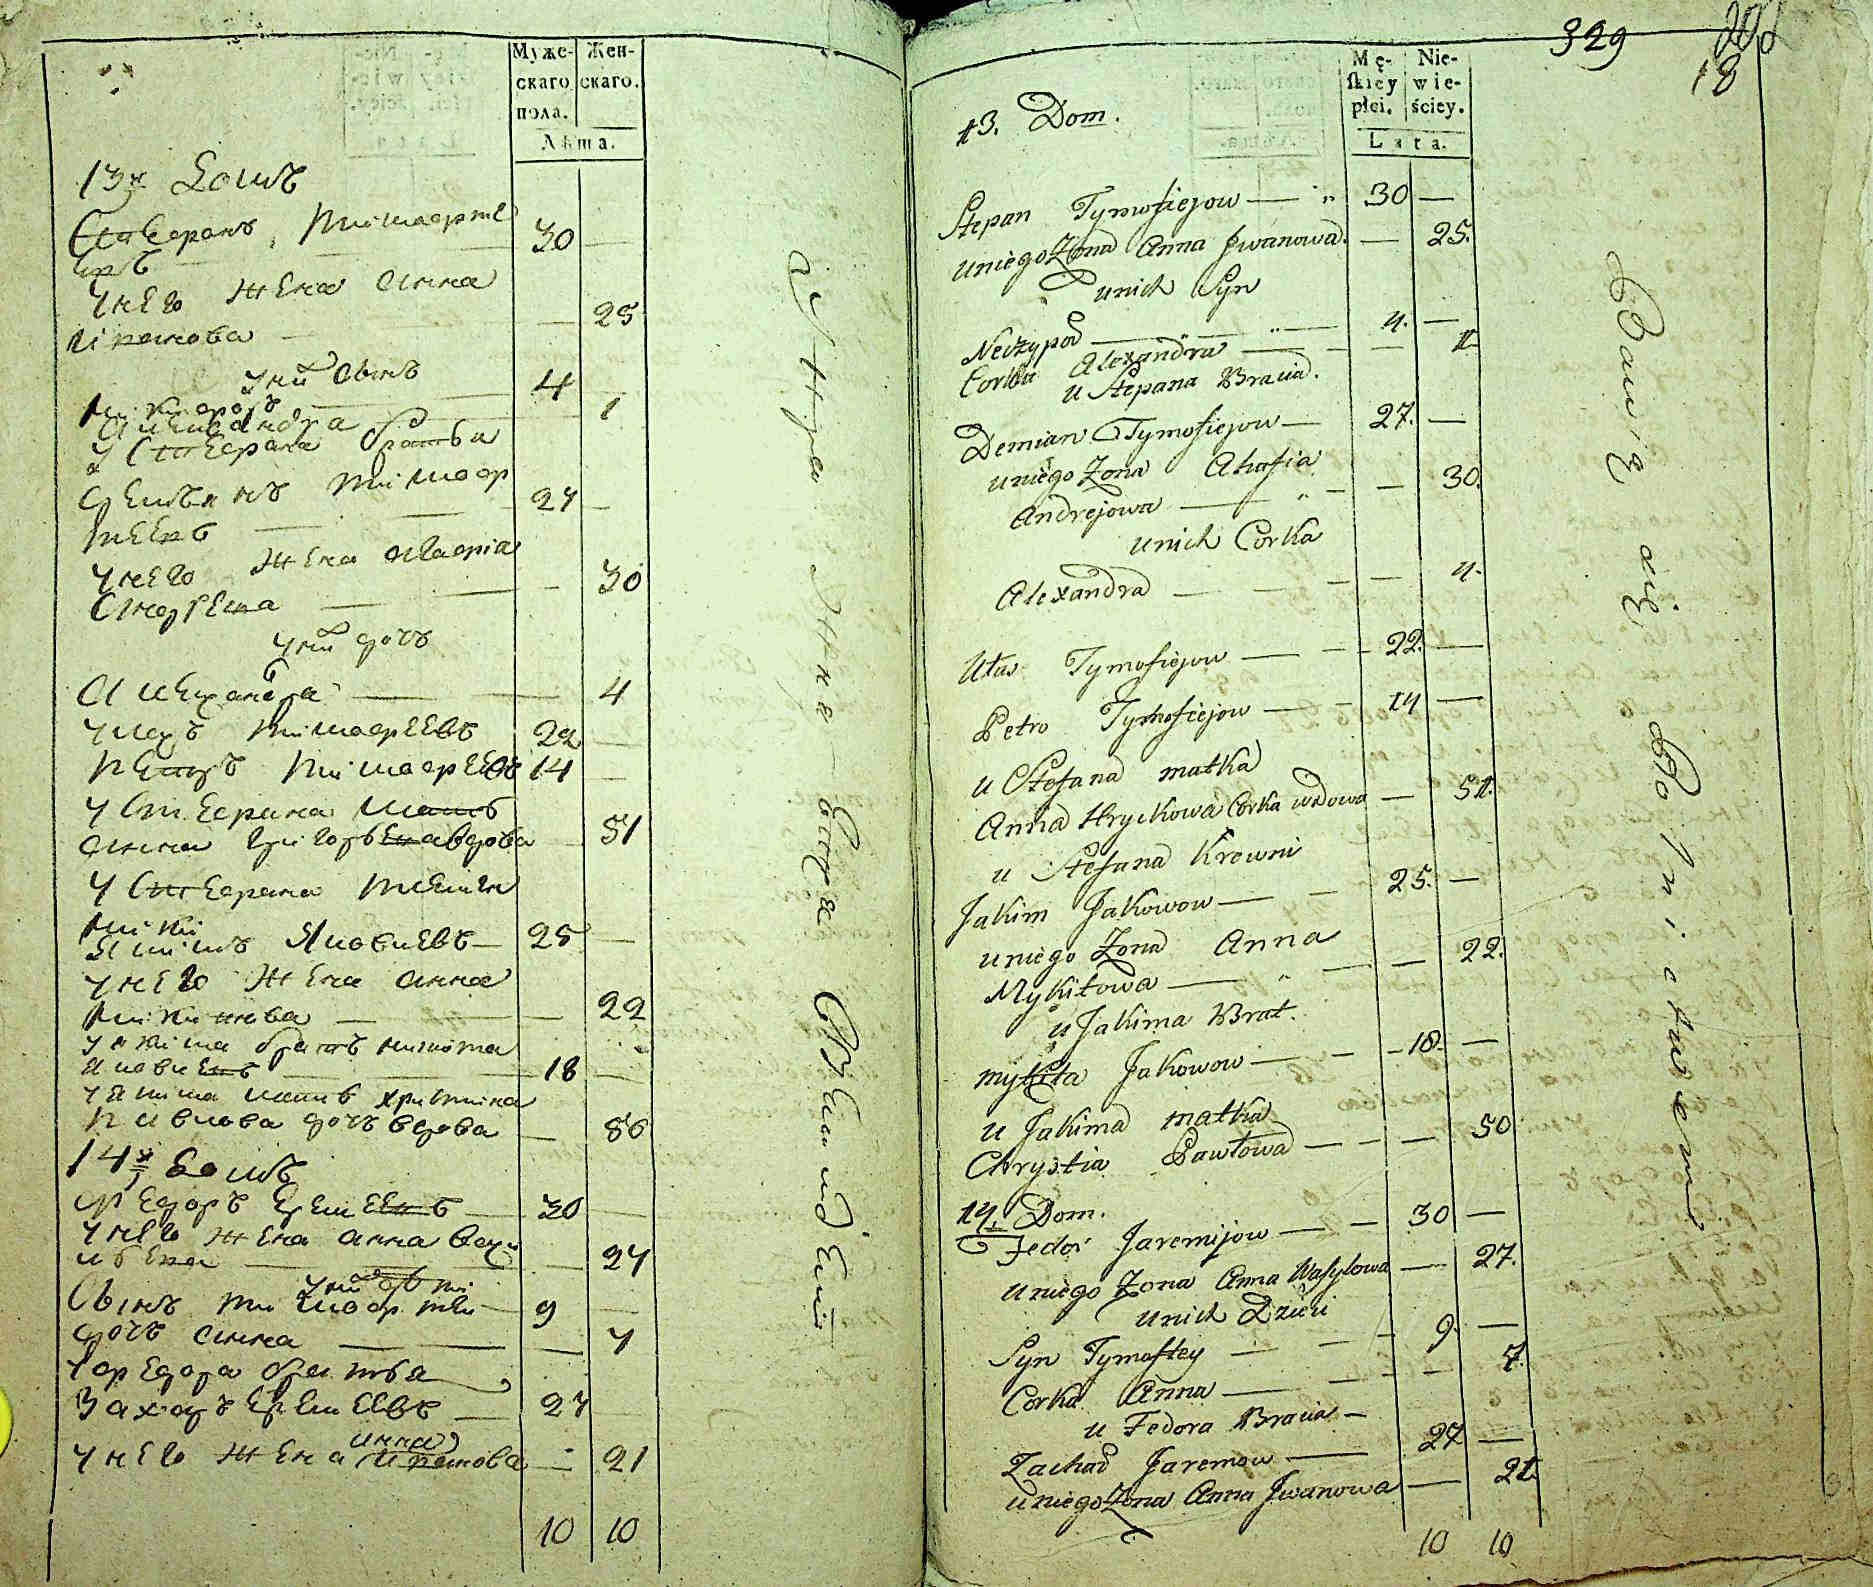 Муже-
скаго
пола.
Жен-
скаго.
Лѣта.
13й Домъ
Стефанъ Тимофѣе
въ 30
У него жена Анна
Иванова 25
У них сынъ
Никифоръ 4
Александра 1
У Стефана братья
Демьянъ Тимоф
тѣевъ 27
У него жена Агафія
Андреева 30
У них дочь
Александра 4
Уласъ Тимофеевъ 22
Петръ Тимофеевъ 14
У Стефана мать
Анна Григорьева вдова 51
У Стефана
Якимъ Яковлевъ 25
У него жена Анна
Никитова 22
У Якима братъ Никита
Яковлевъ 18
У Якима мать Христина
Павлова дочь вдова 50
14й Домъ
Федоръ Еремеевъ 30
У него жена Анна Васи
льева 27
У них дѣти
Сынъ Тимофей 9
дочь Анна 7
У Федора братья
Захаръ Еремеевъ 27
У него жена Анна Иванова 21
10 10
329
18
Mę-
skiey
płci.
Nie-
wie-
ściey.
Lata.
13. Dom.
Stepan Tymofiejow 30
u niego Zona Anna Jwanowa 25.
u nich Syn
Neczypor 4.
Corka Alexandra 1
u Stepana Bracia.
Demian Tymofiejow 27.
u niego Zona Ahafia
Andrejowa 30.
u nich Corka
Alexandra 4.
Ułas Tymofiejow 22.
Petro Tymofiejow 14
u Stefana matka
Anna Hryckowa Corka wdowa 51.
u Stefana Krewni
Jakim Jakowow 25.
u niego Zona Anna
Mykitowa 22.
u Jakima Brat.
mykita Jakowow 18.
u Jakima matka
Chrystia Pawłowa 50
14. Dom.
Fedor Jaremijow 30
u niego Zona Anna Wasylowa 27.
u nich Dzieci
Syn Tymoftey 9.
Corka Anna 7.
u Fedora Bracia
Zachar Jaremow 27
u niego Zona Anna Jwanowa 21.
10 10